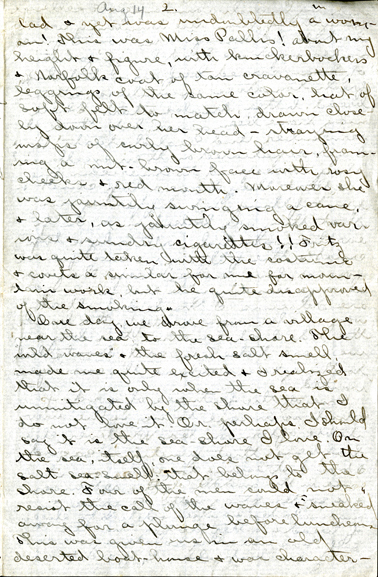 Aug 14 2.
lad & yet was undoubtedly a wom-
an! This was Miss Pallis! about my
height & figure, with knickerbockers
& Norfolk coat of tan cravanette,
leggings of the same color, hat of
soft felt to match, drawn close-
ly down over her head - straying
wisps of curly brown hair, fram-
ing a nut-brown face with rosy
cheeks & red mouth. Moreover she
was jauntily swinging a cane,
& later, as jauntily smoked vari
ous & sundry cigarettes!! Fritz
was quite taken with the costume
& covets a similar for me for moun-
tain work but he quite disapproved
of the smoking.
One day we drove from a village
near the sea to the sea-shore. The
wild waves & the fresh salt smell
made me quite excited & I realized
that it is only when the sea is
unmitigated by the shore that I
do not love it. Or perhaps I should
say it is the sea shore I love. On
the sea, itself, one does not get the
salt sea smell that belongs to the
shore. Four of the men could not
resist the call of the waves & sneaked
away for a plunge before luncheon.
This was given us in an old
deserted boat-house & was character-